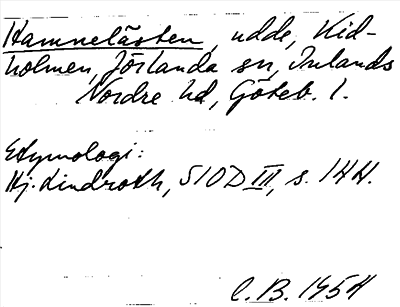 Hamnelästen, udde, Kid-
holmen, Jörlanda sn, Inlands
Nordre hd, Göteb. l.
Etymologi:
Hj. Lindroth, SIOD III, s. 144.
C.B. 1954